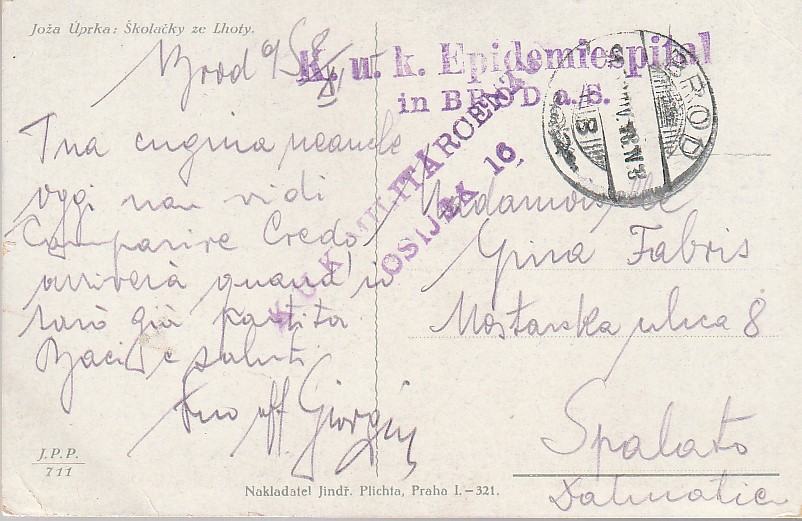 Joža Úprka: Školačky ze Lhoty.
Brod
K. u. k. Epidemiespital
in BROD a. S.
BROD
K.U.K. MILITÄRCENZUR
OSIJEK 16
Tua cugina neanche
oggi non vidi
Comparire Credo
arriverà quand'io
sarò già partita
Baci e saluti
tuo aff Giorgio
Mademoiselle
Gina Fabris
Mostarska ulica 8
Spalato
Dalmatia
J.P.P.
711
Nakladatel Jindř. Plichta, Praha I.-321.